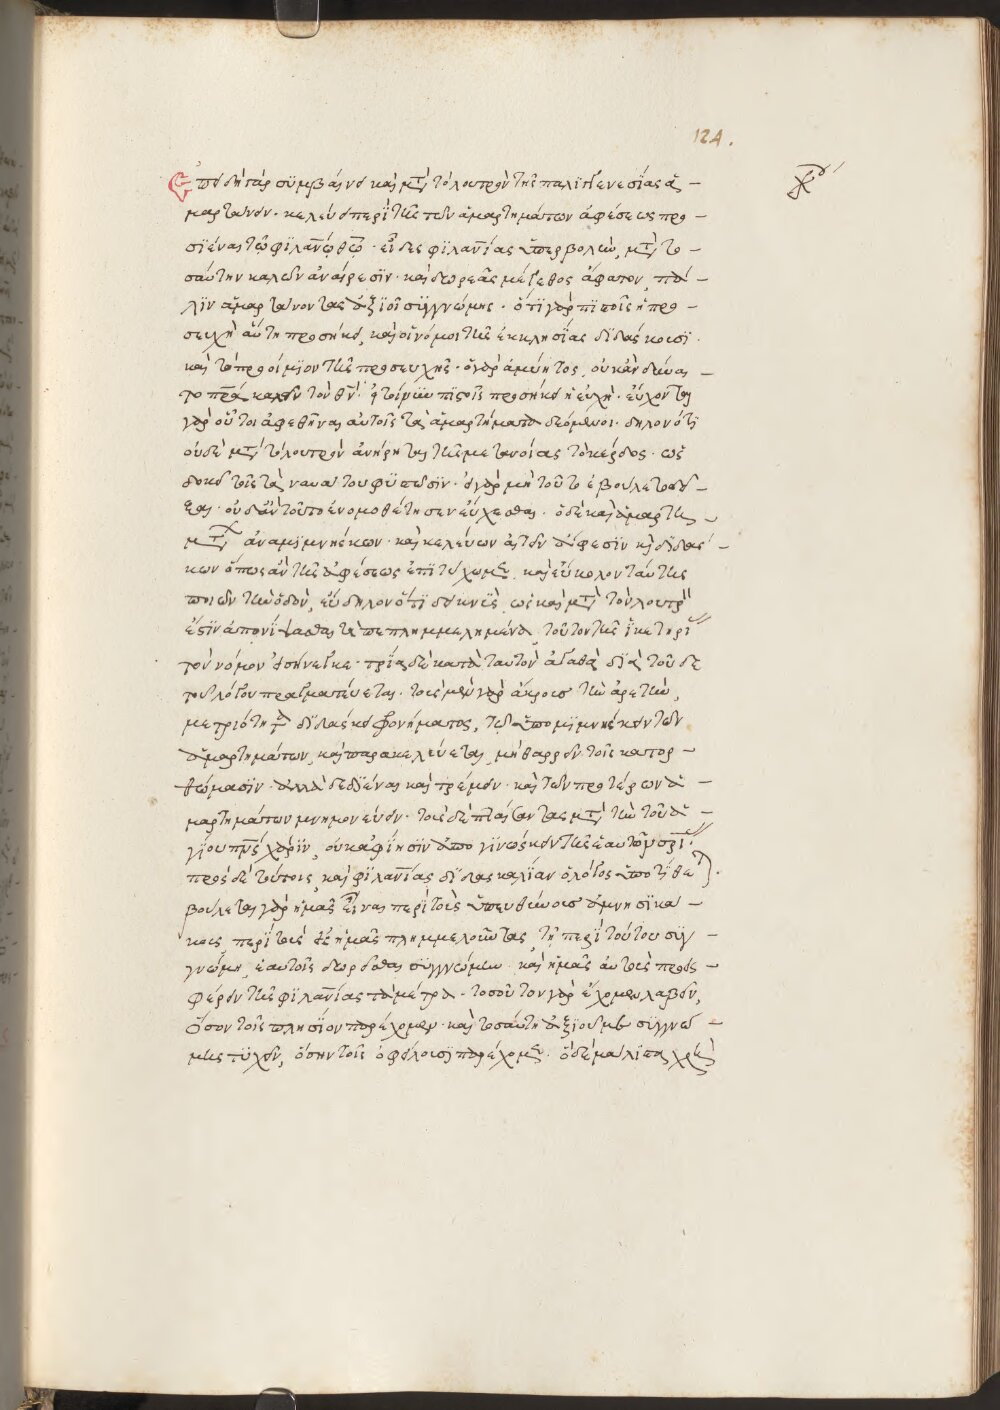 124.
Χρ
Ἐπειδὴ γὰρ συμβαίνει καὶ μετὰ τὸ λουτρὸν τῆς παλιγγενεσίας ἁ-
μαρτάνειν· κελεύει περὶ τῆς τῶν ἁμαρτημάτων ἀφέσεως προ-
σιέναι τῷ φιλανθρώπῳ Θεῷ· εἶδες φιλανθρωπίας ὑπερβολήν, μετὰ το-
σαύτην κακῶν ἀναίρεσιν· καὶ δωρεᾶς μέγεθος ἄφατον, πά-
λιν ἁμαρτάνοντας ἀξιοῖ συγγνώμης· ὅτι γὰρ πιστοῖς ἡ προ-
σευχὴ αὕτη προσήκει, καὶ οἱ νόμοι τῆς ἐκκλησίας διδάσκουσι·
καὶ τὸ προοίμιον τῆς προσευχῆς· ὁ γὰρ ἀμύητος, οὐκ ἂν δύναι-
το πατέρα καλεῖν τὸν Θεόν· εἰ τοίνυν πιστοῖς προσήκει ἡ εὐχή· εὔχονται
γὰρ οὗτοι ἀφεθῆναι αὐτοῖς τὰ ἁμαρτήματα δεόμενοι· δηλονότι
οὐδὲ μετὰ τὸ λουτρὸν ἀνῄρηται τῆς μετανοίας τὸ κέρδος· ὡς
δοκεῖ τοῖς τὰ ναυάτου φυπῶσιν· εἰ γὰρ μὴ τοῦτο ἐβούλετο δεῖ-
ξαι· οὐδ' ἂν τοῦτο ἐνομοθέτησεν εὔχεσθαι· ὁ δὲ καὶ ἁμαρτη-
μάτων ἀναμιμνήσκων· καὶ κελεύων αἰτεῖν ἄφεσιν καὶ διδάσ-
κων ὅπως ἂν τῆς ἀφέσεως ἐπιτύχωμεν, καὶ εὔκολον ταύτης
ποιῶν τὴν ὁδόν, εὔδηλον ὅτι δεικνὺς, ὡς καὶ μετὰ τὸ λουτρὸν
ἔστιν ἀπονίψασθαι τὰ πεπλημμελημένα, τοῦτον τῆς ἱκετηρί
τὸν νόμον εἰσήνεγκε· τρία δὲ κατὰ ταυτὸν ἀγαθὰ διὰ τοῦδε
τοῦ λόγου πραγματεύεται· τοὺς μὲν γὰρ ἄκρους τὴν ἀρετήν,
μετριότητα διδάσκει φρονήματος, τῷ ὑπομιμνήσκειν τῶν
ἁμαρτημάτων, καὶ παρακελεύεται, μὴ θαρρεῖν τοῖς κατορ-
θώμασιν· ἀλλὰ δεδιέναι καὶ τρέμειν· καὶ τῶν προτέρων ἁ-
μαρτημάτων μνημονεύειν· τοὺς δὲ πταίσαντας μετὰ τὴν τοῦ ἁ-
γίου πνεύματος χάριν, οὐκ ἀφίησιν ἀπογινώσκειν τῆς ἑαυτῶν σωτηρί
πρὸς δὲ τούτοις, καὶ φιλανθρωπίας διδασκαλίαν ὁ λόγος ὑποτίθεται·
βούλεται γὰρ ἡμᾶς εἶναι περὶ τοὺς ὑπευθύνους ἀμνησικά-
κους, περὶ τοὺς εἰς ἡμᾶς πλημμελοῦντας, τῇ περὶ τούτου συγ-
γνώμῃ, ἑαυτοῖς δωρεῖσθαι συγγνώμην· καὶ ἡμᾶς αὐτοὺς προσ-
φέρειν τῆς φιλανθρωπίας τὰ μέτρα· τοσοῦτον γὰρ εὐχόμεθα λαβεῖν,
ὅσον τοῖς πλησίον παρέχομεν· καὶ τοσαύτης ἀξιοῦμεν συγγνώ-
μης τυχεῖν, ὅσην τοῖς ὀφείλουσι παρέχομεν·